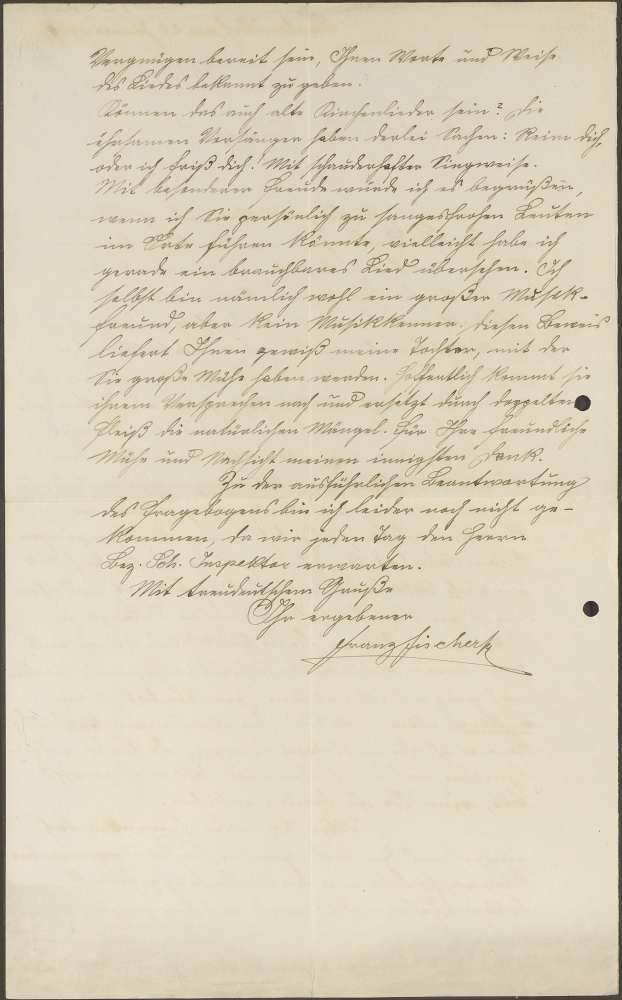 Vergnügen bereit sein, Ihnen Worte und Weise
des Liedes bekannt zu geben.
Können das auch alte Kirchenlieder sein? Die
ehrsamen Vorsänger haben derlei Sachen: Reim dich,
oder ich friß dich! Mit schauderhafter Singweise.
Mit besonderer Freude würde ich es begrüßen,
wenn ich Sie persönlich zu sangesfrohen Leuten
im Orte führen könnte, vielleicht habe ich
gerade ein brauchbares Lied übersehen. Ich
selbst bin nämlich wohl ein großer Musik-
freund, aber kein Musikkenner. Diesen Beweis
liefert Ihnen gewiß meine Tochter, mit der
Sie große Mühe haben werden. Hoffentlich kommt sie
ihrem Versprechen nach und ersetzt durch doppelten
Fleiß die natürlichen Mängel. Für Ihre freundliche
Mühe und Nachsicht meinen innigsten Dank.
Zu der ausführlichen Beantwortung
des Fragebogens bin ich leider noch nicht ge-
kommen, da wir jeden Tag den Herrn
Bez. Sch. Inspektor erwarten.
Mit treudeutschem Gruße
Ihr ergebener
Franz Fischer